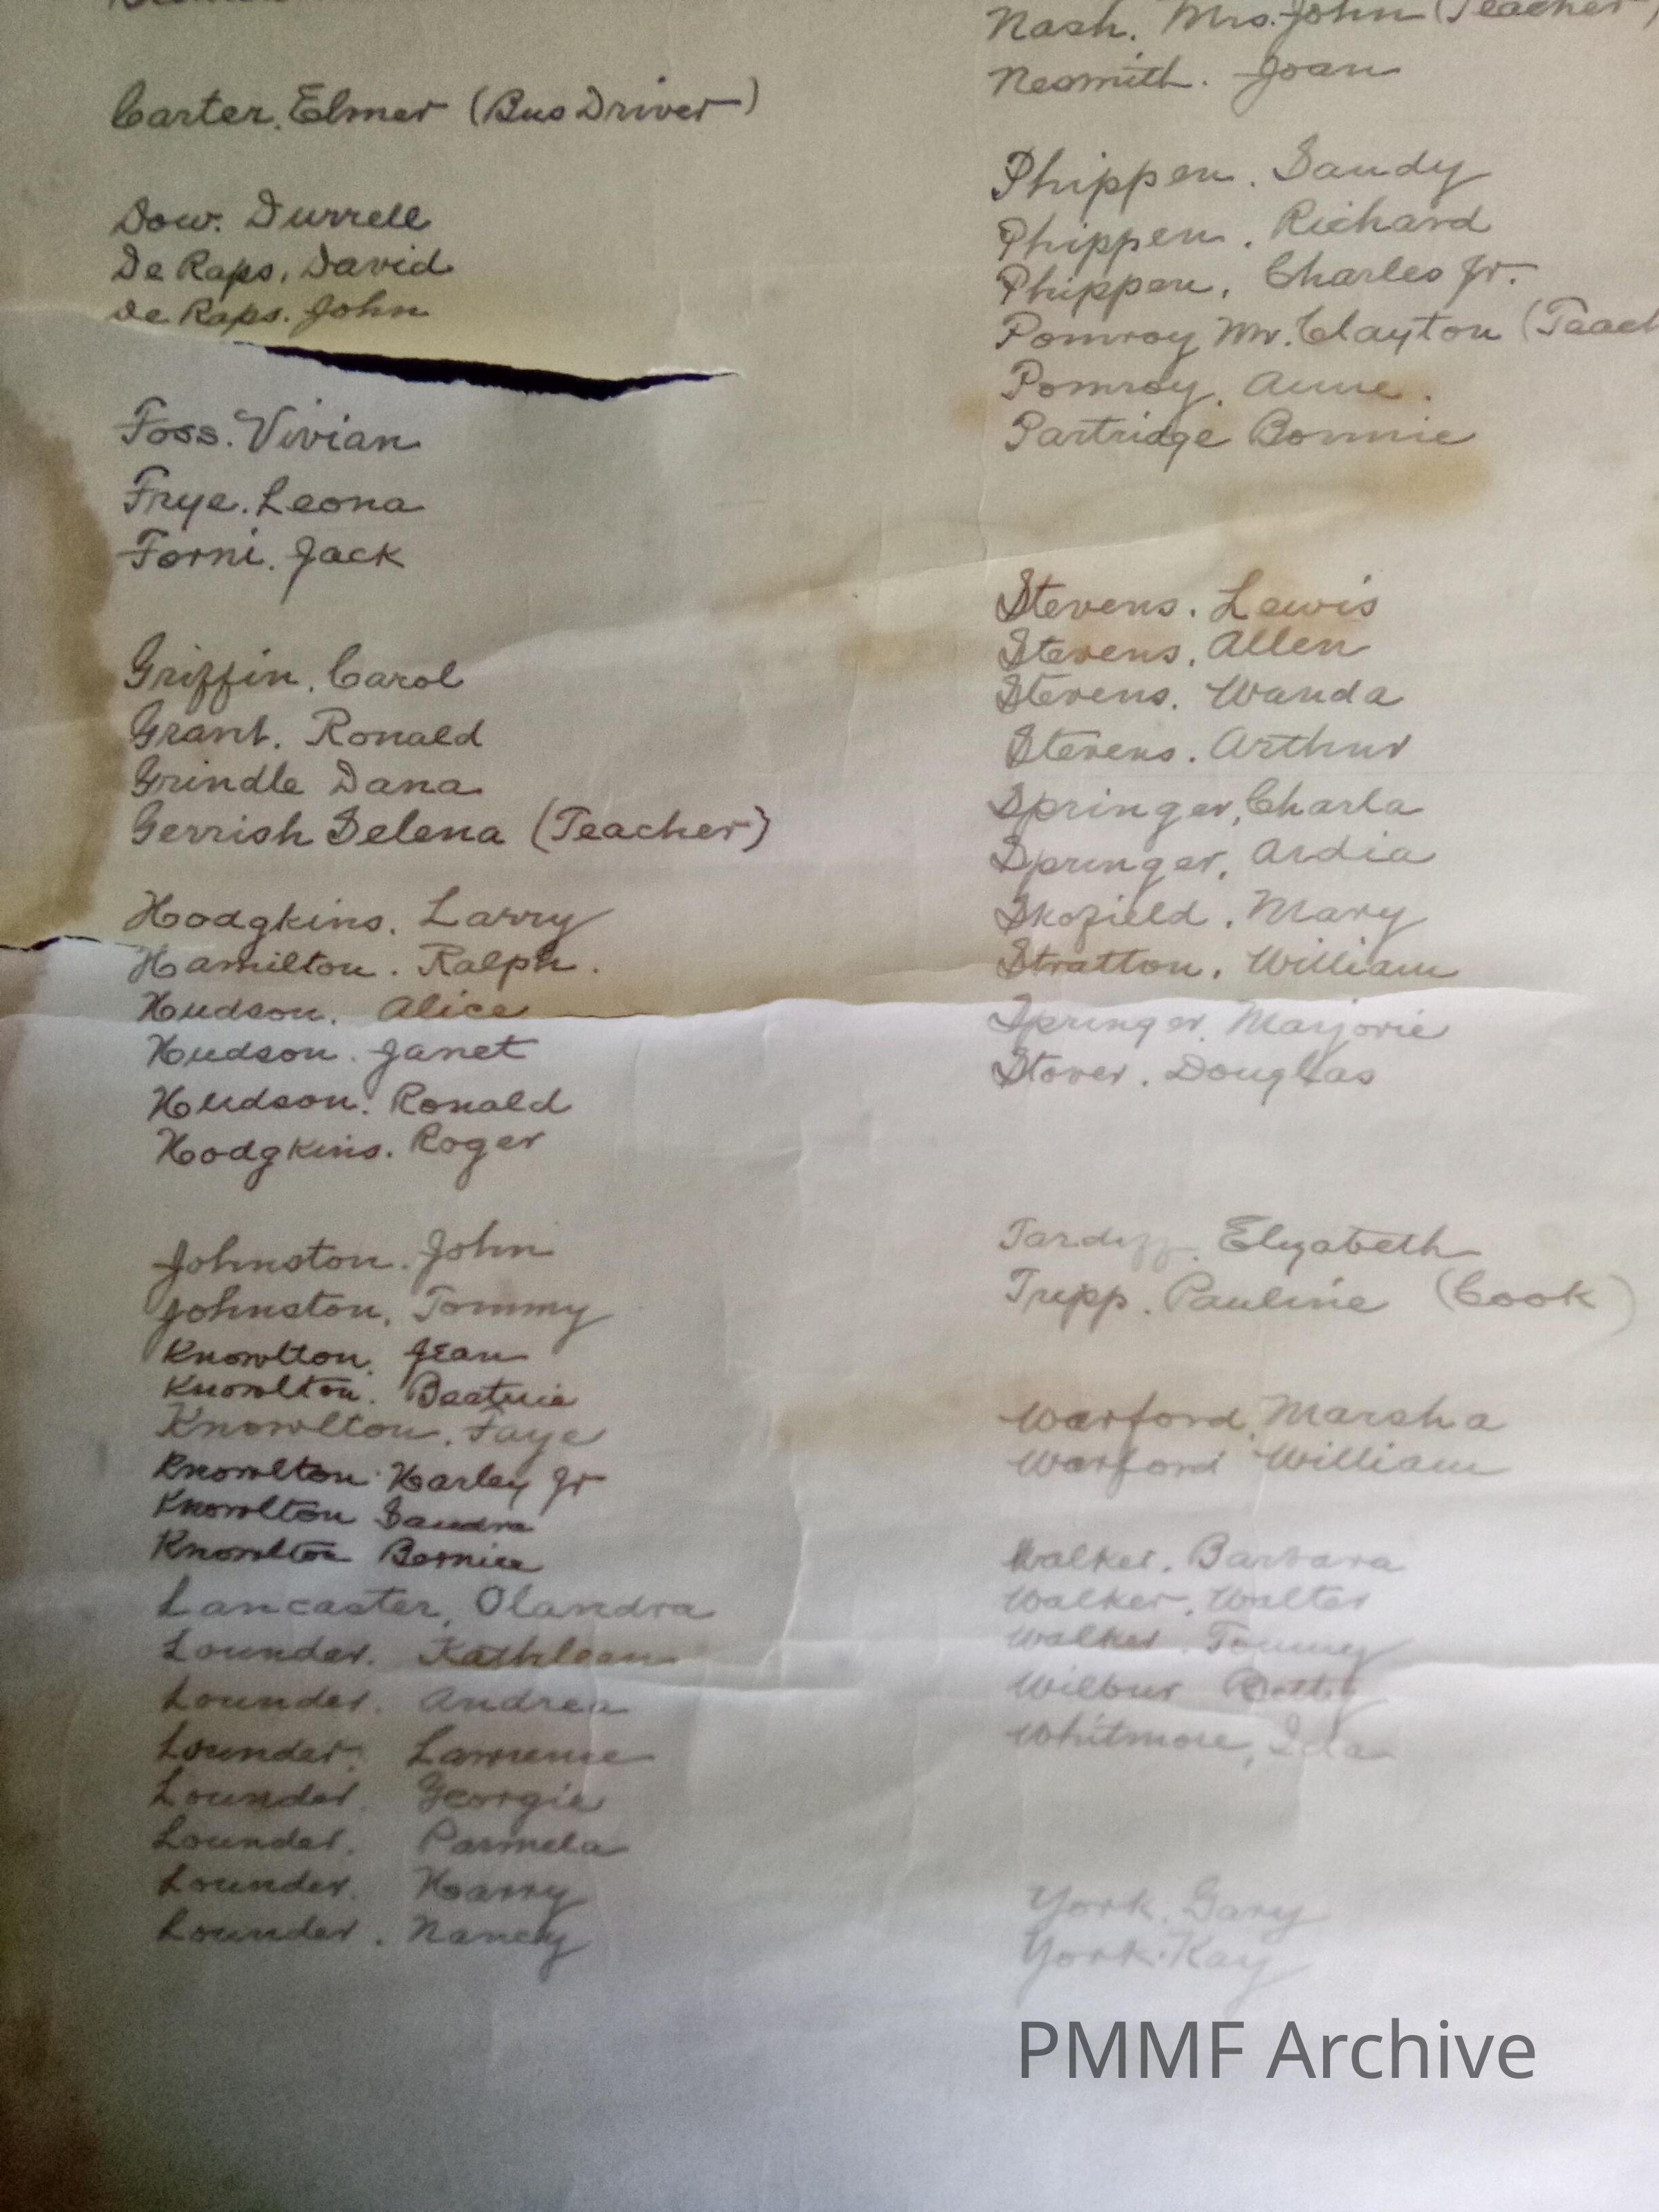 Carter, Elmer (Bus Driver)
Dow. Durrell
De Raps, David
De Raps. John
Foss. Vivian
Frye. Leona
Forni. Jack
Griffin, Carol
Grant. Ronald
Grindle Dana
Gerrish Selena (Teacher)
Hodgkins. Larry
Hamilton. Ralph.
Hudson. Alice
Hudson. Janet
Hudson. Ronald
Hodgkins. Roger
Johnston. John
Johnston, Tommy
Knowlton. Jean
Knowlton.
Knowlton, Faye
Knowlton Harley Jr
Knowlton Sandra
Knowlton Bernice
Lancaster, Olandra
Lounder. Kathleen
Lounder. Andrea
Lounder. Lawrence
Lounder. Georgie
Lounder. Parmela
Lounder. Harry
Lounder. Nancy
Nash. Mrs. John (Teacher)
Nesmith. Joan
Phippen. Sandy
Phippen. Richard
Phippen, Charles Jr.
Pomroy Mr. Clayton (Teach
Pomroy. Anne.
Partridge Bonnie
Stevens. Lewis
Stevens, Allen
Stevens. Wanda
Stevens. Arthur
Springer, Charla
Springer, Ardia
Skofield. Mary
Stratton, William
Springer. Marjorie
Stover. Douglas
Tardiff. Elizabeth
Tripp. Pauline (Cook)
Warford, Marsha
Warford William
Walker. Barbara
Walker. Walter
Walker. Tommy
Wilbur Betty
Whitmore, Ida
York. Gary
York. Kay
PMMF Archive